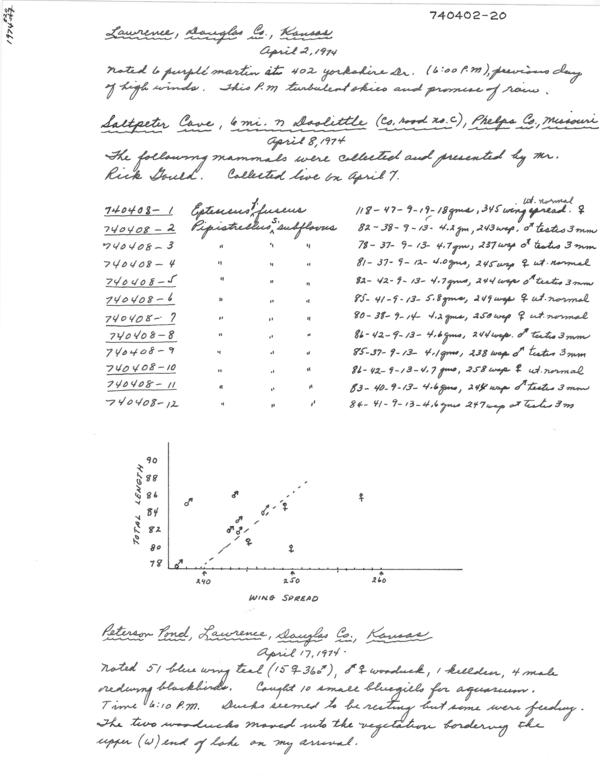 740402-20
1974
Lawrence, Douglas Co., Kansas
April 2, 1974
Noted 6 purple martin at 402 Yorkshire Dr. (6:00 P.M), previous day
of high winds. This P.M turbulent skies and promise of rain.
Saltpeter Cave, 6 mi. N Doolittle (Co. road no. C), Phelps Co, Missouri
April 8, 1974
The following mammals were collected and presented by Mr.
Rick Gould. Collected live on April 7.
740408-1 Eptesicus f. fuscus 118-47-9-19-18gms, 345 wing spread. ♀ ut. normal
740408-2 Pipistrellus s. subflavus 82-38-9-13-4.2gm, 243 wsp. ♂ testes 3 mm
740408-3 " " " 78-37-9-13-4.7gms, 237 wsp ♂ testes 3 mm
740408-4 " " " 81-37-9-12-4.0gms, 245 wsp ♀ ut. normal
740408-5 " " " 82-42-9-13-4.7gms, 244 wsp ♂ testes 3 mm
740408-6 " " " 85-41-9-13-5.8gms, 249 wsp ♀ ut normal
740408-7 " " " 80-38-9-14-4.2gms, 250 wsp ♀ ut. normal
740408-8 " " " 86-42-9-13-4.6gms, 244 wsp. ♂ testis 3mm
740408-9 " " " 85-37-9-13-4.1gms, 238 wsp ♂ testis 3mm
740408-10 " " " 86-42-9-13-4.7 gms, 258 wsp ♀ ut. normal
740408-11 " " " 83-40-9-13-4.6gms, 244 wsp ♂ testes 3 mm
740408-12 " " " 84-41-9-13-4.6gms 247 wsp ♂ testes 3 m
TOTAL LENGTH
90
88
86
84
82
80
78
240 250 260
WING SPREAD
Peterson Pond, Lawrence, Douglas Co., Kansas
April 17, 1974.
Noted 51 blue wing teal (15♀ 36♂), ♂ ♀ woodduck, 1 killdeer, 4 male
redwing blackbirds. Caught 10 small bluegills for aquarium.
Time 6:10 P.M. Ducks seemed to be resting but some were feeding.
The two woodducks moved into the vegetation bordering the
upper (W) end of lake on my arrival.